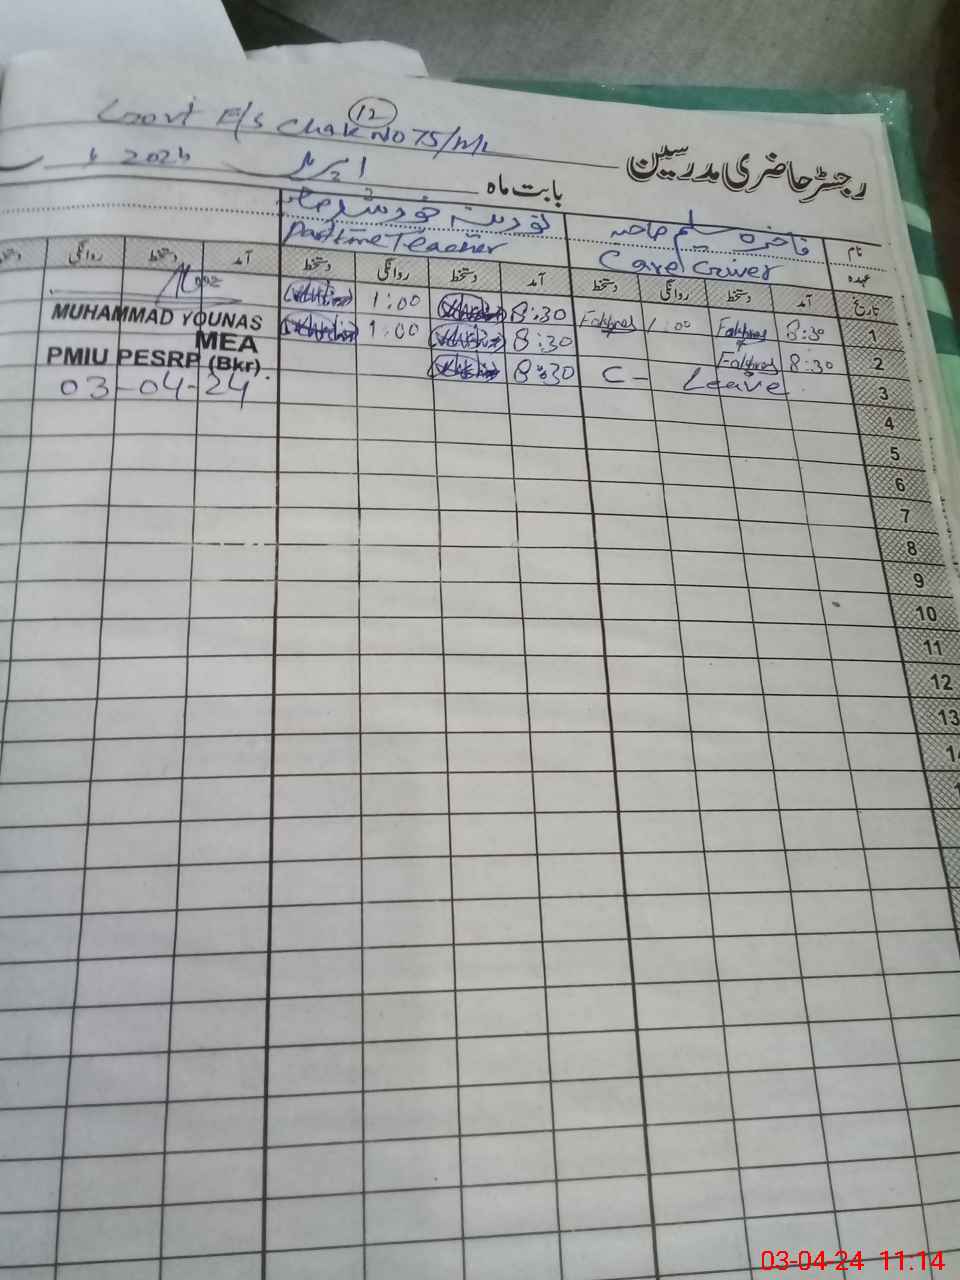 12
Govt E/S Chak No 75/ML
رجسٹر حاضری مدرسین
بابت ماہ اپریل 2024
نام فاخرہ سلیم صاحبہ خورشید
عہدہ Care Giver Part time Teacher
تاریخ آمد دستخط روانگی دستخط آمد دستخط روانگی دستخط آمد دستخط روانگی
1 8:30 1:00 8:30 1:00
2 8:30 8:30 1:00
3 C- Leave 8:30
MUHAMMAD YOUNAS
MEA
PMIU PESRP (Bkr)
03-04-24
4
5
6
7
8
9
10
11
12
13
03-04-24 11:14